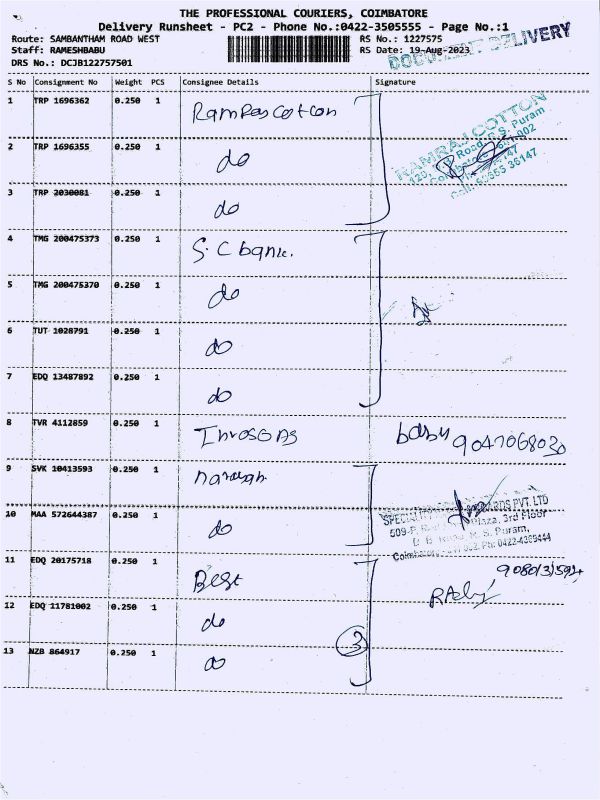 THE PROFESSIONAL COURIERS, COIMBATORE
Delivery Runsheet - PC2 - Phone No.:0422-3505555 - Page No.:1
Route: SAMBANTHAM ROAD WEST
Staff: RAMESHBABU
DRS No.: DCJB122757501
RS No.: 1227575
RS Date: 19-Aug-2023
DOCUMENT DELIVERY
S No Consignment No Weight PCS Consignee Details Signature
1 TRP 1696362 0.250 1
RAMRAJ COTTON
2 TRP 1696355 0.250 1 do
3 TRP 2030081 0.250 1 do
4 TMG 200475373 0.250 1 S.C bank.
5 TMG 200475370 0.250 1 do
6 TUT 1028791 0.250 1 do
7 EDQ 13487892 0.250 1 do
8 TVR 4112859 0.250 1 baby
9 SVK 10413593 0.250 1
10 MAA 572644387 0.250 1 do
PVT. LTD
Plaza, 3rd Floor
Puram,
Ph: 0422-4369444
11 EDQ 20175718 0.250 1 Best
12 EDQ 11781002 0.250 1 do
13 NZB 864917 0.250 1 do
3